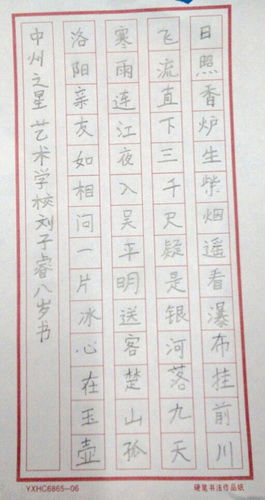 日照香炉生紫烟遥看瀑布挂前川
飞流直下三千尺疑是银河落九天
寒雨连江夜入吴平明送客楚山孤
洛阳亲友如相问一片冰心在玉壶
中州之星艺术学校刘子睿八岁书
YXHC6865-06
硬笔书法作品纸